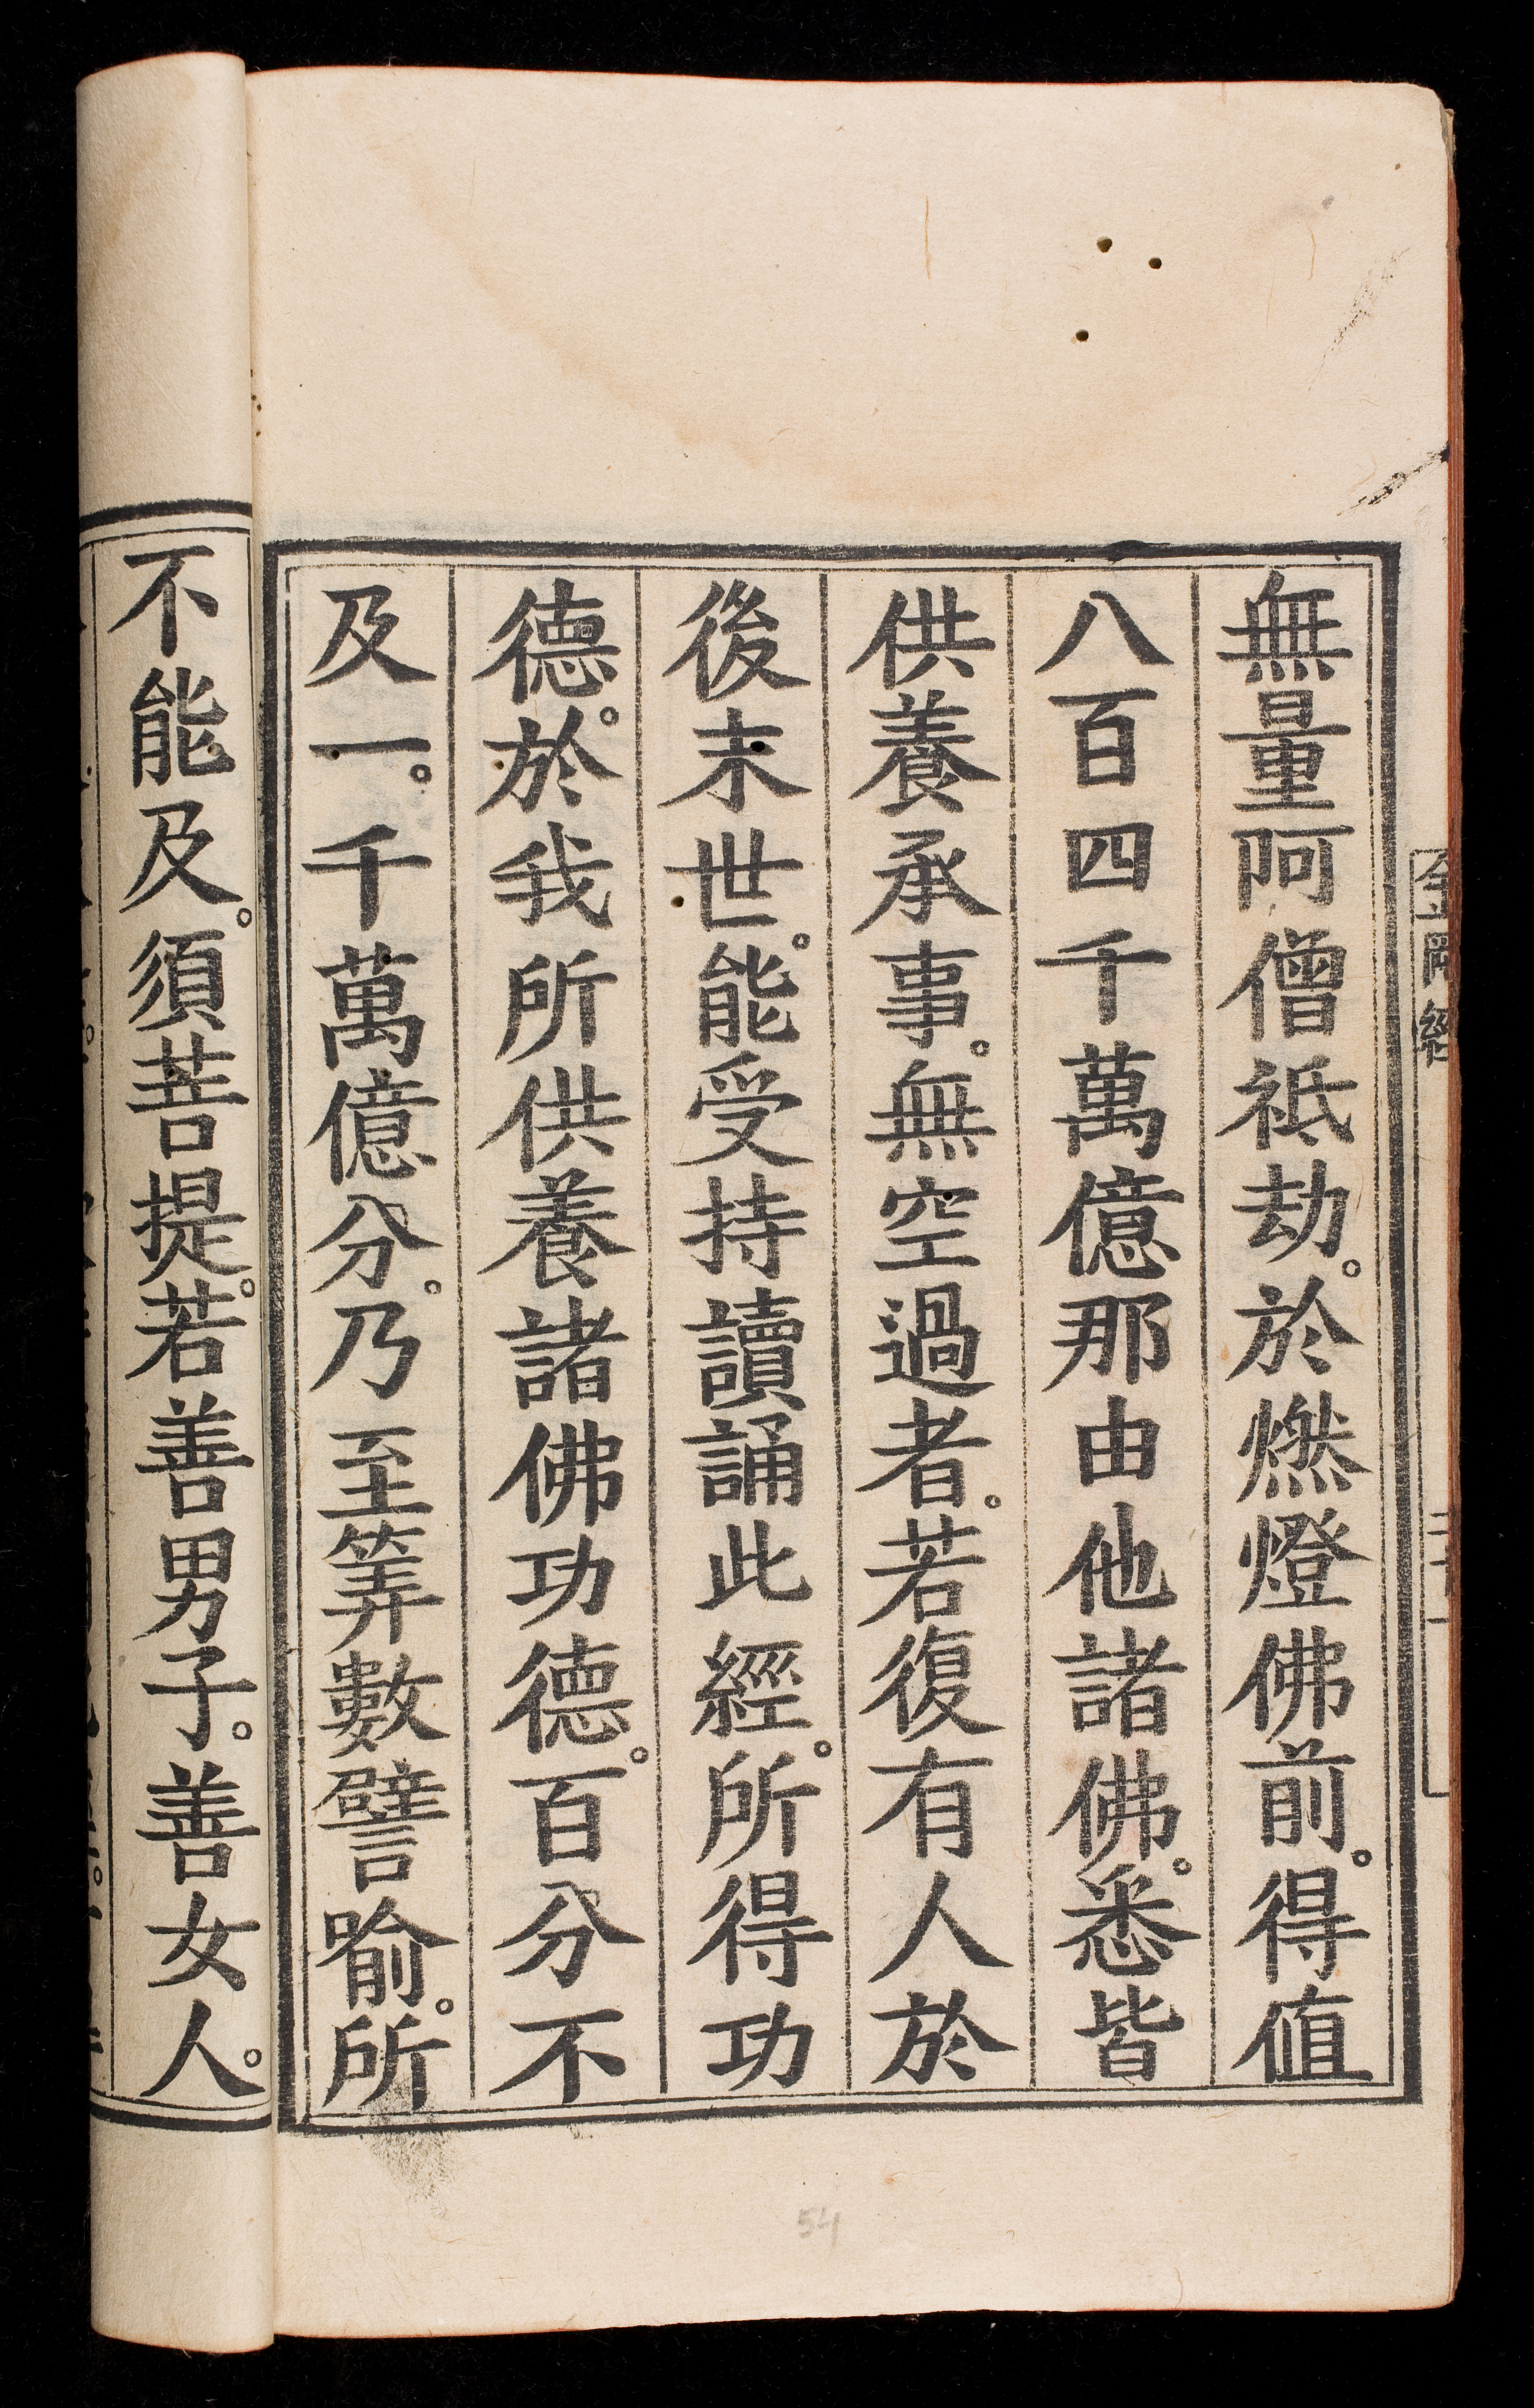 無量阿僧祇劫。於燃燈佛前。得值
八百四千萬億那由他諸佛。悉皆
供養承事。無空過者。若復有人於
後末世。能受持讀誦此經。所得功
德。於我所供養諸佛功德。百分不
及一。千萬億分。乃至筭數譬喻。所
不能及。須菩提。若善男子。善女人。
金剛經
54